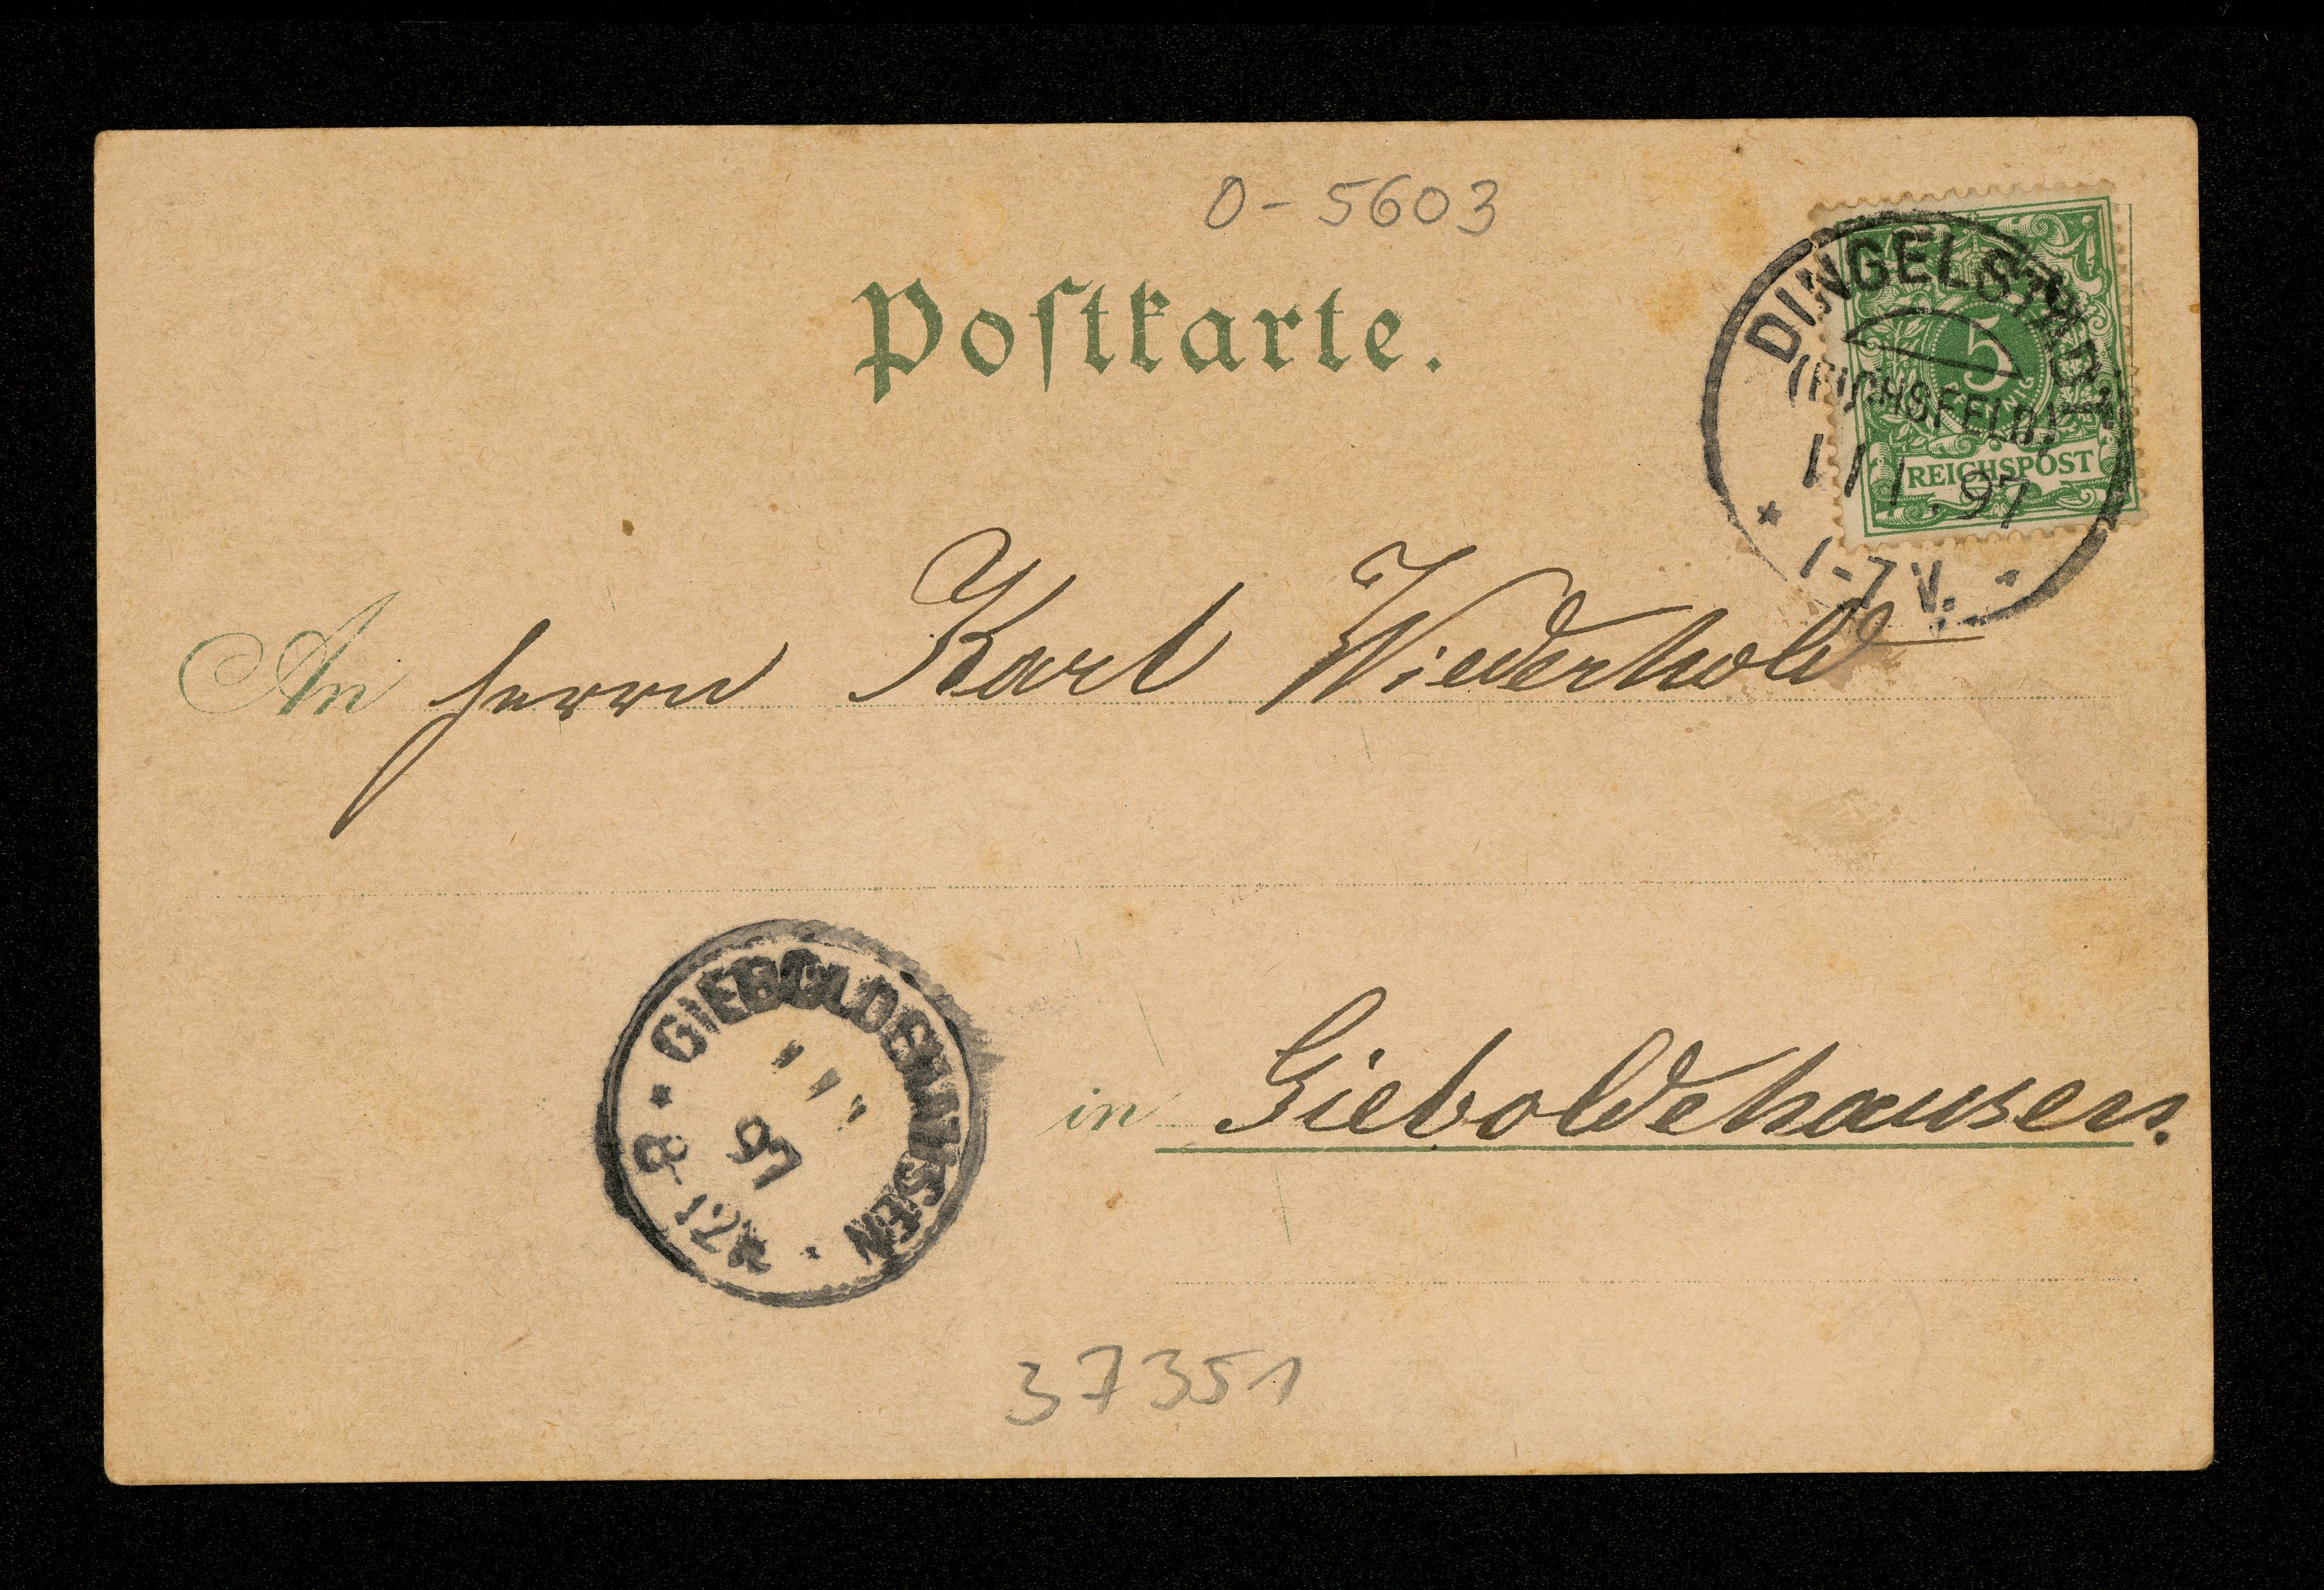 0-5603
Postkarte.
DINGELSTÄDT
(EICHSFELD)
5
PFENNIG
REICHSPOST
11 1.97
1-7 V.
An Herrn Karl Wiederhold
GIEBOLDEHAUSEN
97
8-12
in Gieboldehausen.
37351